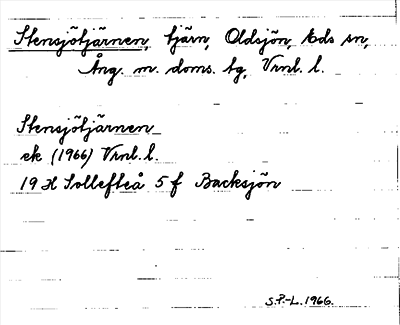 Stensjötjärnen, tjärn, Oldsjön, Eds sn,
Ång. m. doms. tg, Vrnl. l.
Stensjötjärnen
ek (1966) Vrnl. l.
19 H Sollefteå 5 f Backsjön
S.P.-L. 1966.